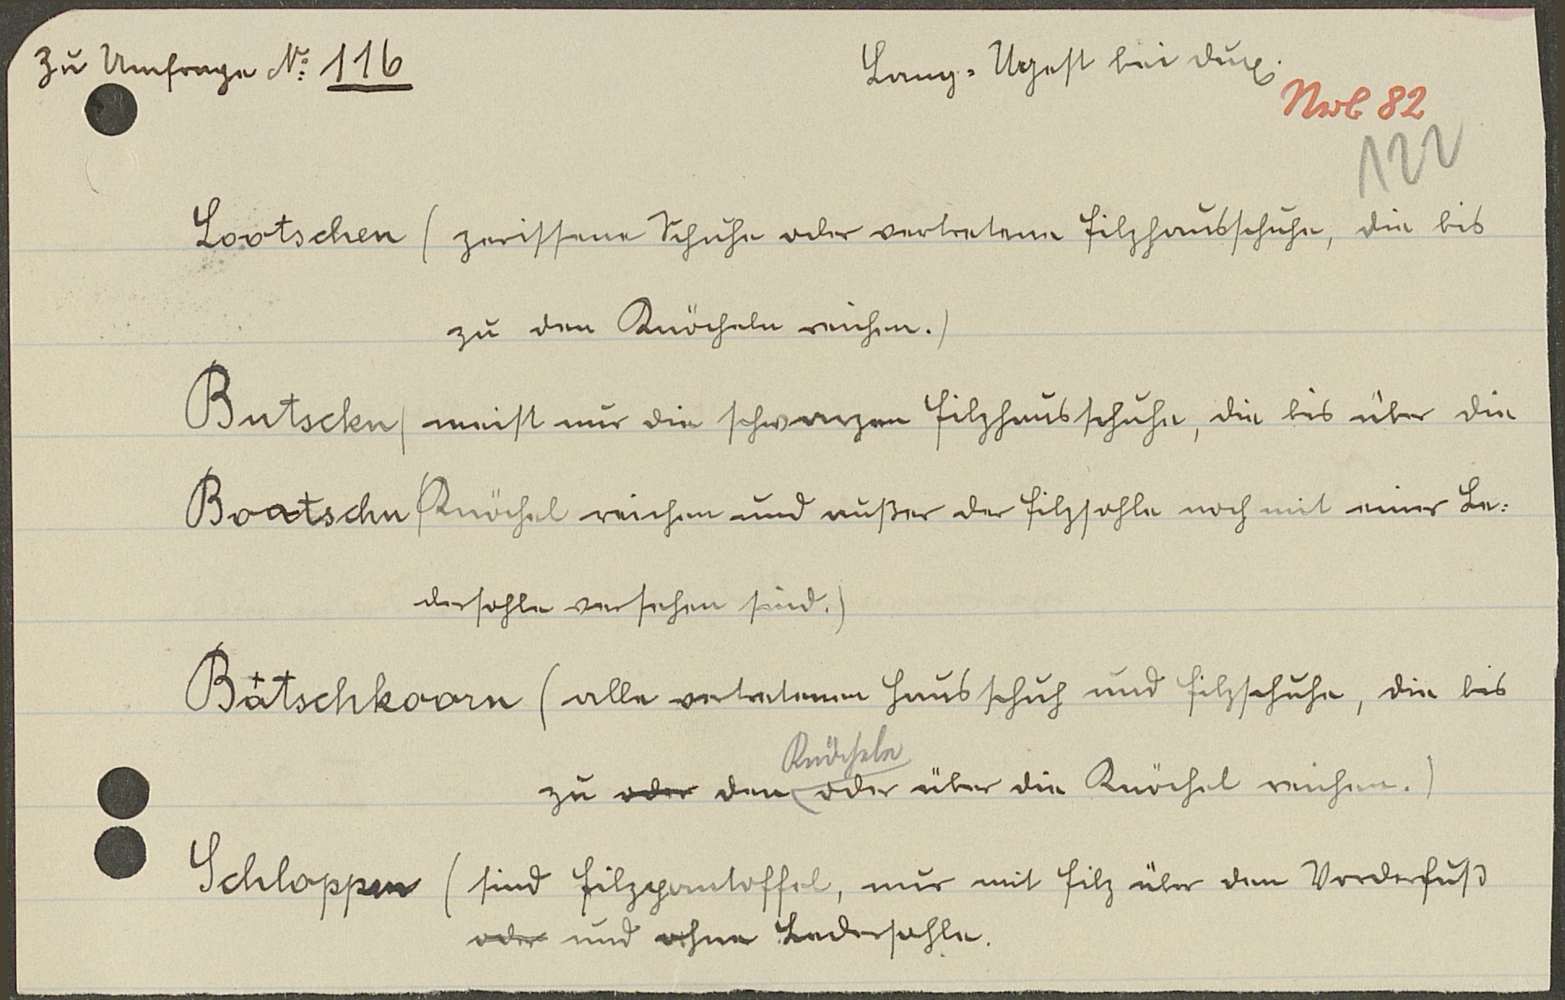 Zu Umfrage No: 116
Lang-Ugest bei Dux.
Nwb 82
122
Lootschen (zerissene Schuhe oder vertretene Filzhausschuhe, die bis
zu den Knöcheln reichen.)
Butschn (meist nur die schwarzen Filzhausschuhe, die bis über die
Bootschn (Knöchel reichen und außer der Filzsohle noch mit einer Le-
dersohle versehen sind.)
Båtschkoorn (alle vertretenen Hausschuh und Filzschuhe, die bis
Knöcheln
zu oder den oder über die Knöchel reichen.)
Schloppen (sind Filzpantoffel, nur mit Filz über dem Vorderfuß
oder und ohne Ledersohle.